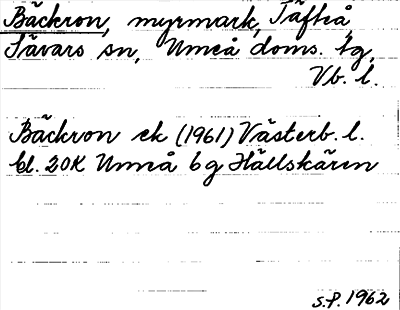 Bäckron, myrmark, Täfteå
Sävars sn, Umeå doms. tg,
Vb. l.
Bäckron ek (1961) Västerb. l.
bl. 20K Umeå 6g Hällskären
S.P. 1962